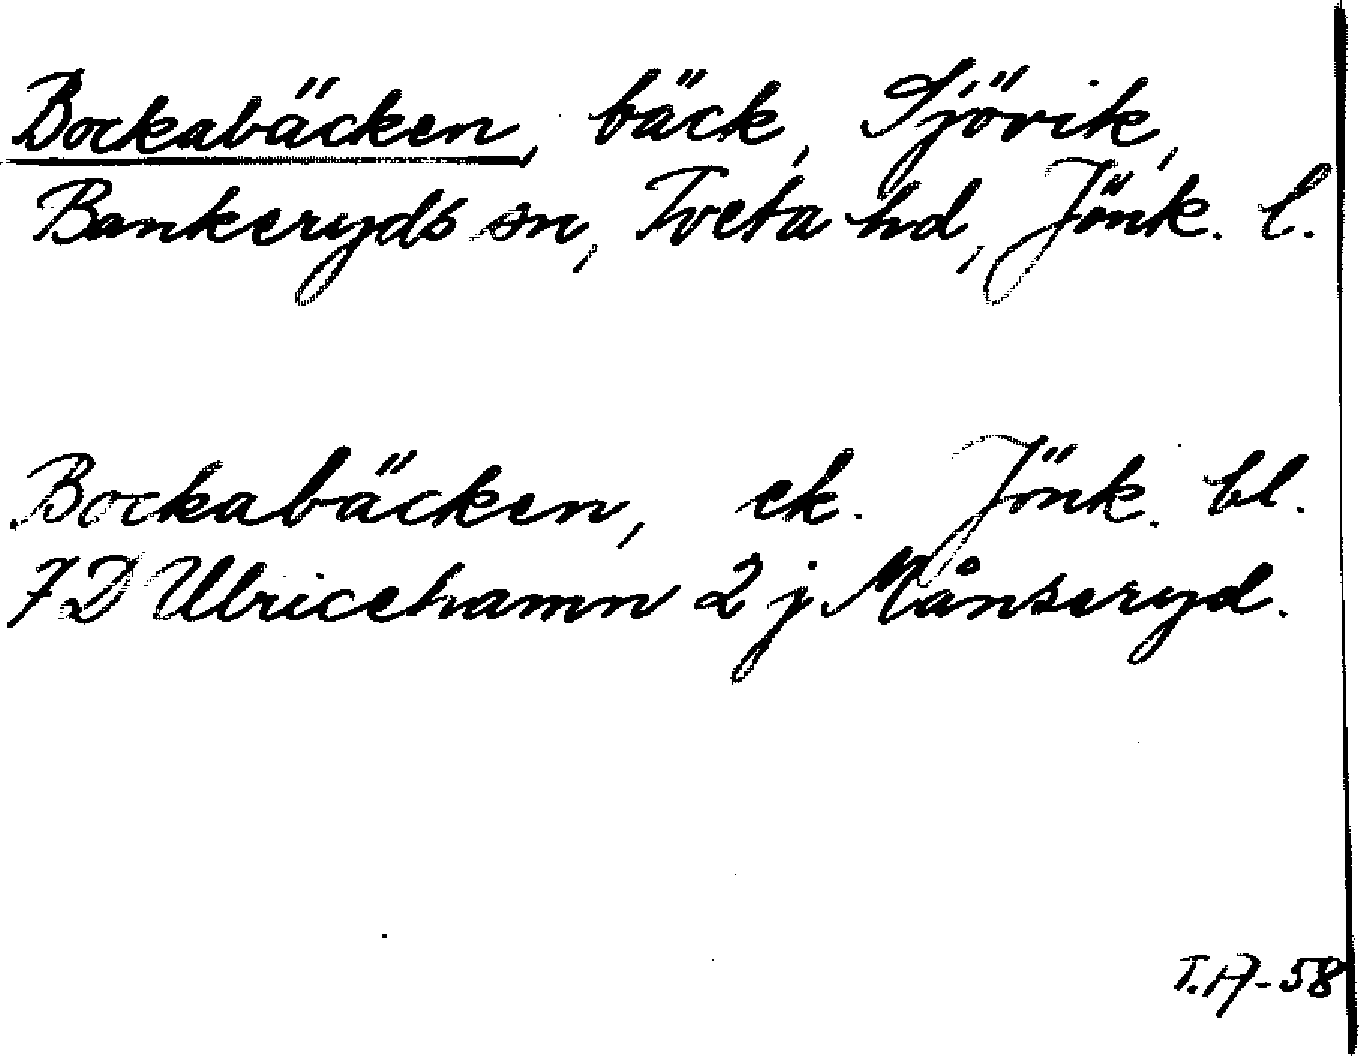 Bockabäcken, bäck, Sjövik,
Bankeryds sn, Tveta hd, Jönk. l.
Bockabäcken, ek. Jönk. bl.
7D Ulricehamn 2 j Månseryd.
T.A-58